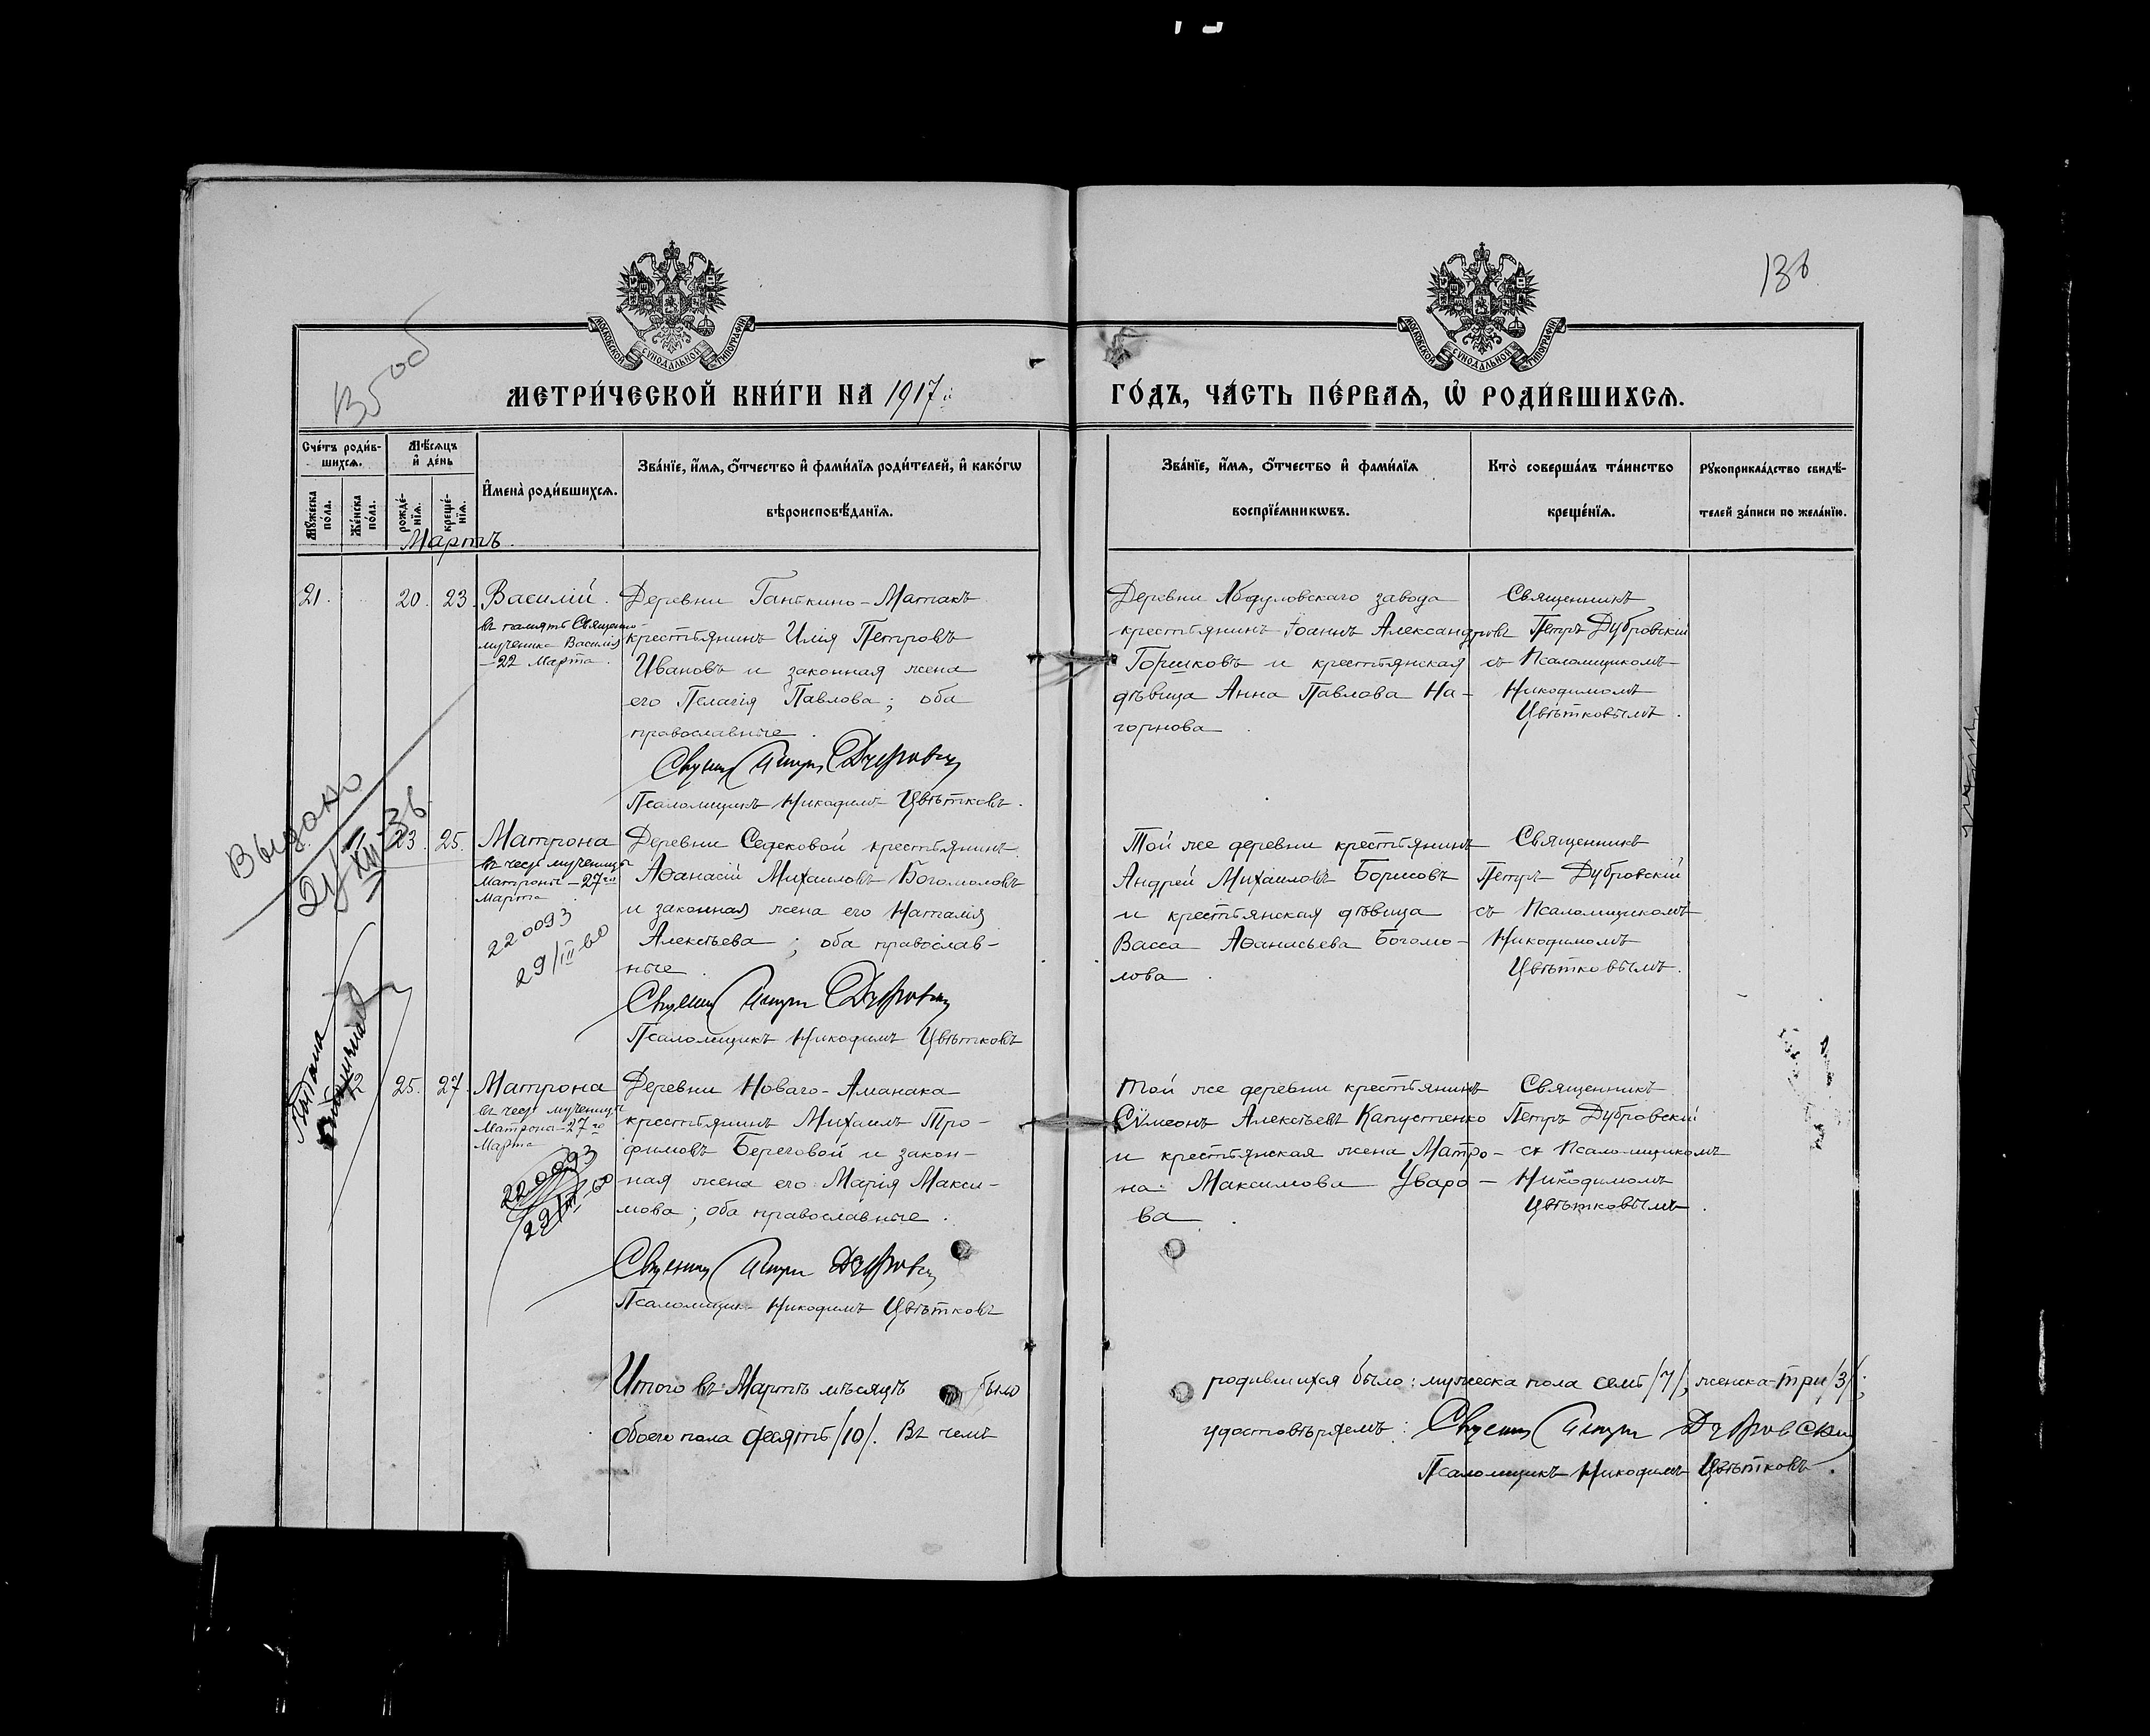 136
МОСКОВСКОЙ СѴНОДАЛЬНОЙ ТИПОГРАФІИ
МОСКОВСКОЙ СѴНОДАЛЬНОЙ ТИПОГРАФІИ
135 об
МЕТРИ́ЧЕСКОЙ КНИ́ГИ НА 1917й
ГО́ДЪ, ЧА́СТЬ ПЕ́РВАѦ, Ѡ҆ РОДИ́ВШИХСѦ.
Сче́тъ роди́в-
шихсѧ.
Мѣ́сѧцъ
и҆ де́нь
Мꙋ́жеска
по́ла.
Же́нска
по́ла.
рожде́-
нїѧ.
креще́-
нїѧ.
И҆мена̀ роди́вшихсѧ.
Зва́нїе, и҆́мѧ, ѻ҆́тчество и҆ фамѝлїѧ роди́телей, и҆ како́гѡ
вѣроисповѣ́данїѧ.
Зва́нїе, и҆́мѧ, ѻ҆́тчество и҆ фами́лїѧ
воспрїе́мникѡвъ.
Кто̀ соверша́лъ та́инство
креще́нїѧ.
Рꙋкоприкла́дство свидѣ́-
телей за́писи по жела́нїю.
Мартъ.
21. 20. 23. Василій.
въ память Священно-
мученика Василія
-22 Марта.
Деревни Ганькино-Матакъ
крестьянинъ Илія Петровъ
Ивановъ и законная жена
его Пелагія Павлова; оба
православные.
Псаломщикъ Никодимъ Цвѣтковъ.
Деревни Абдуловскаго завода
крестьянинъ Іоаннъ Александровъ
Горшковъ и крестьянская
дѣвица Анна Павлова На-
горнова.
Священникъ
Петръ Дубровскій
съ Псаломщикомъ
Никодимомъ
Цвѣтковымъ.
Выдано
21/XII-36
23. 25. Матрона
въ честь мученицы
Матроны - 27го
Марта
220093
29/III-60
Деревни Седековой крестьянинъ
Аѳанасій Михаиловъ Богомоловъ
и законная жена его Наталія
Алексѣева; оба православ-
ные.
Псаломщикъ Никодимъ Цвѣтковъ
Той же деревни крестьянинъ
Андрей Михаиловъ Борисовъ
и крестьянская дѣвица
Васса Аѳанасьева Богомо-
лова.
Священникъ
Петръ Дубровскій
съ Псаломщикомъ
Никодимомъ
Цвѣтковымъ.
12 25. 27. Матрона
въ честь мученицы
Матроны-27го
Марта
220093
29/III-60
Деревни Новаго-Аманака
крестьянинъ Михаилъ Тро-
фимовъ Береговой и закон-
ная жена его Марія Макси-
мова; оба православные.
Псаломщикъ Никодимъ Цвѣтковъ
Той же деревни крестьянинъ
Сѵмеонъ Алексѣевъ Капустенко
и крестьянская жена Матро-
на Максимова Уваро-
ва.
Священникъ
Петръ Дубровскій
съ Псаломщикомъ
Никодимомъ
Цвѣтковымъ.
Итого въ Мартѣ мѣсяцѣ было
обоего пола десять /10/. Въ чемъ
родившихся было: мужеска пола семь /7/, женска-три /3/;
удостовѣряемъ: Священникъ Петръ Дубровскій
Псаломщикъ Никодимъ Цвѣтковъ.